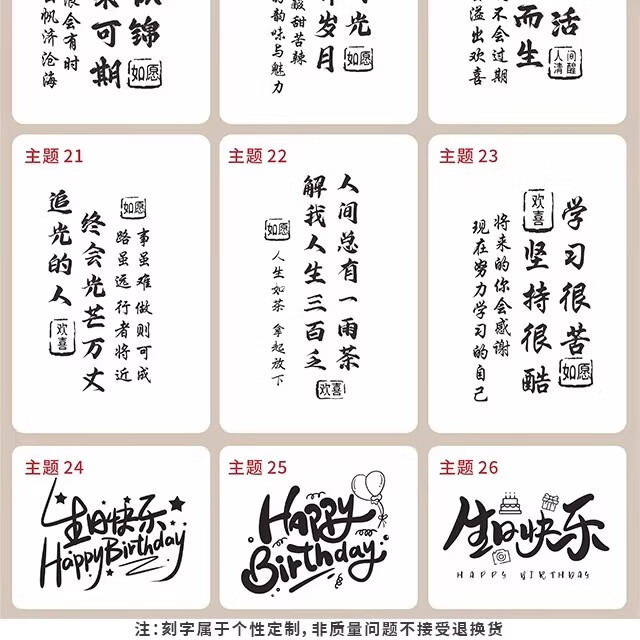 锦
如愿
可期
会有时
帆济沧海
光
如愿
岁月
甜苦辣
韵味与魅力
活
人间清醒
而生
不会过期
溢出欢喜
主题 21
追光的人
欢喜
终会光芒万丈
如愿
事虽难 做则可成
路虽远 行者将近
主题 22
人间总有一雨茶
解我人生三百乏
欢喜
如愿
人生如茶 拿起放下
主题 23
学习很苦
如愿
欢喜
坚持很酷
将来的你会感谢
现在努力学习的自己
主题 24
生日快乐
Happy Birthday
主题 25
Happy
Birthday
主题 26
生日快乐
HAPPY BIRTHDAY
注:刻字属于个性定制,非质量问题不接受退换货